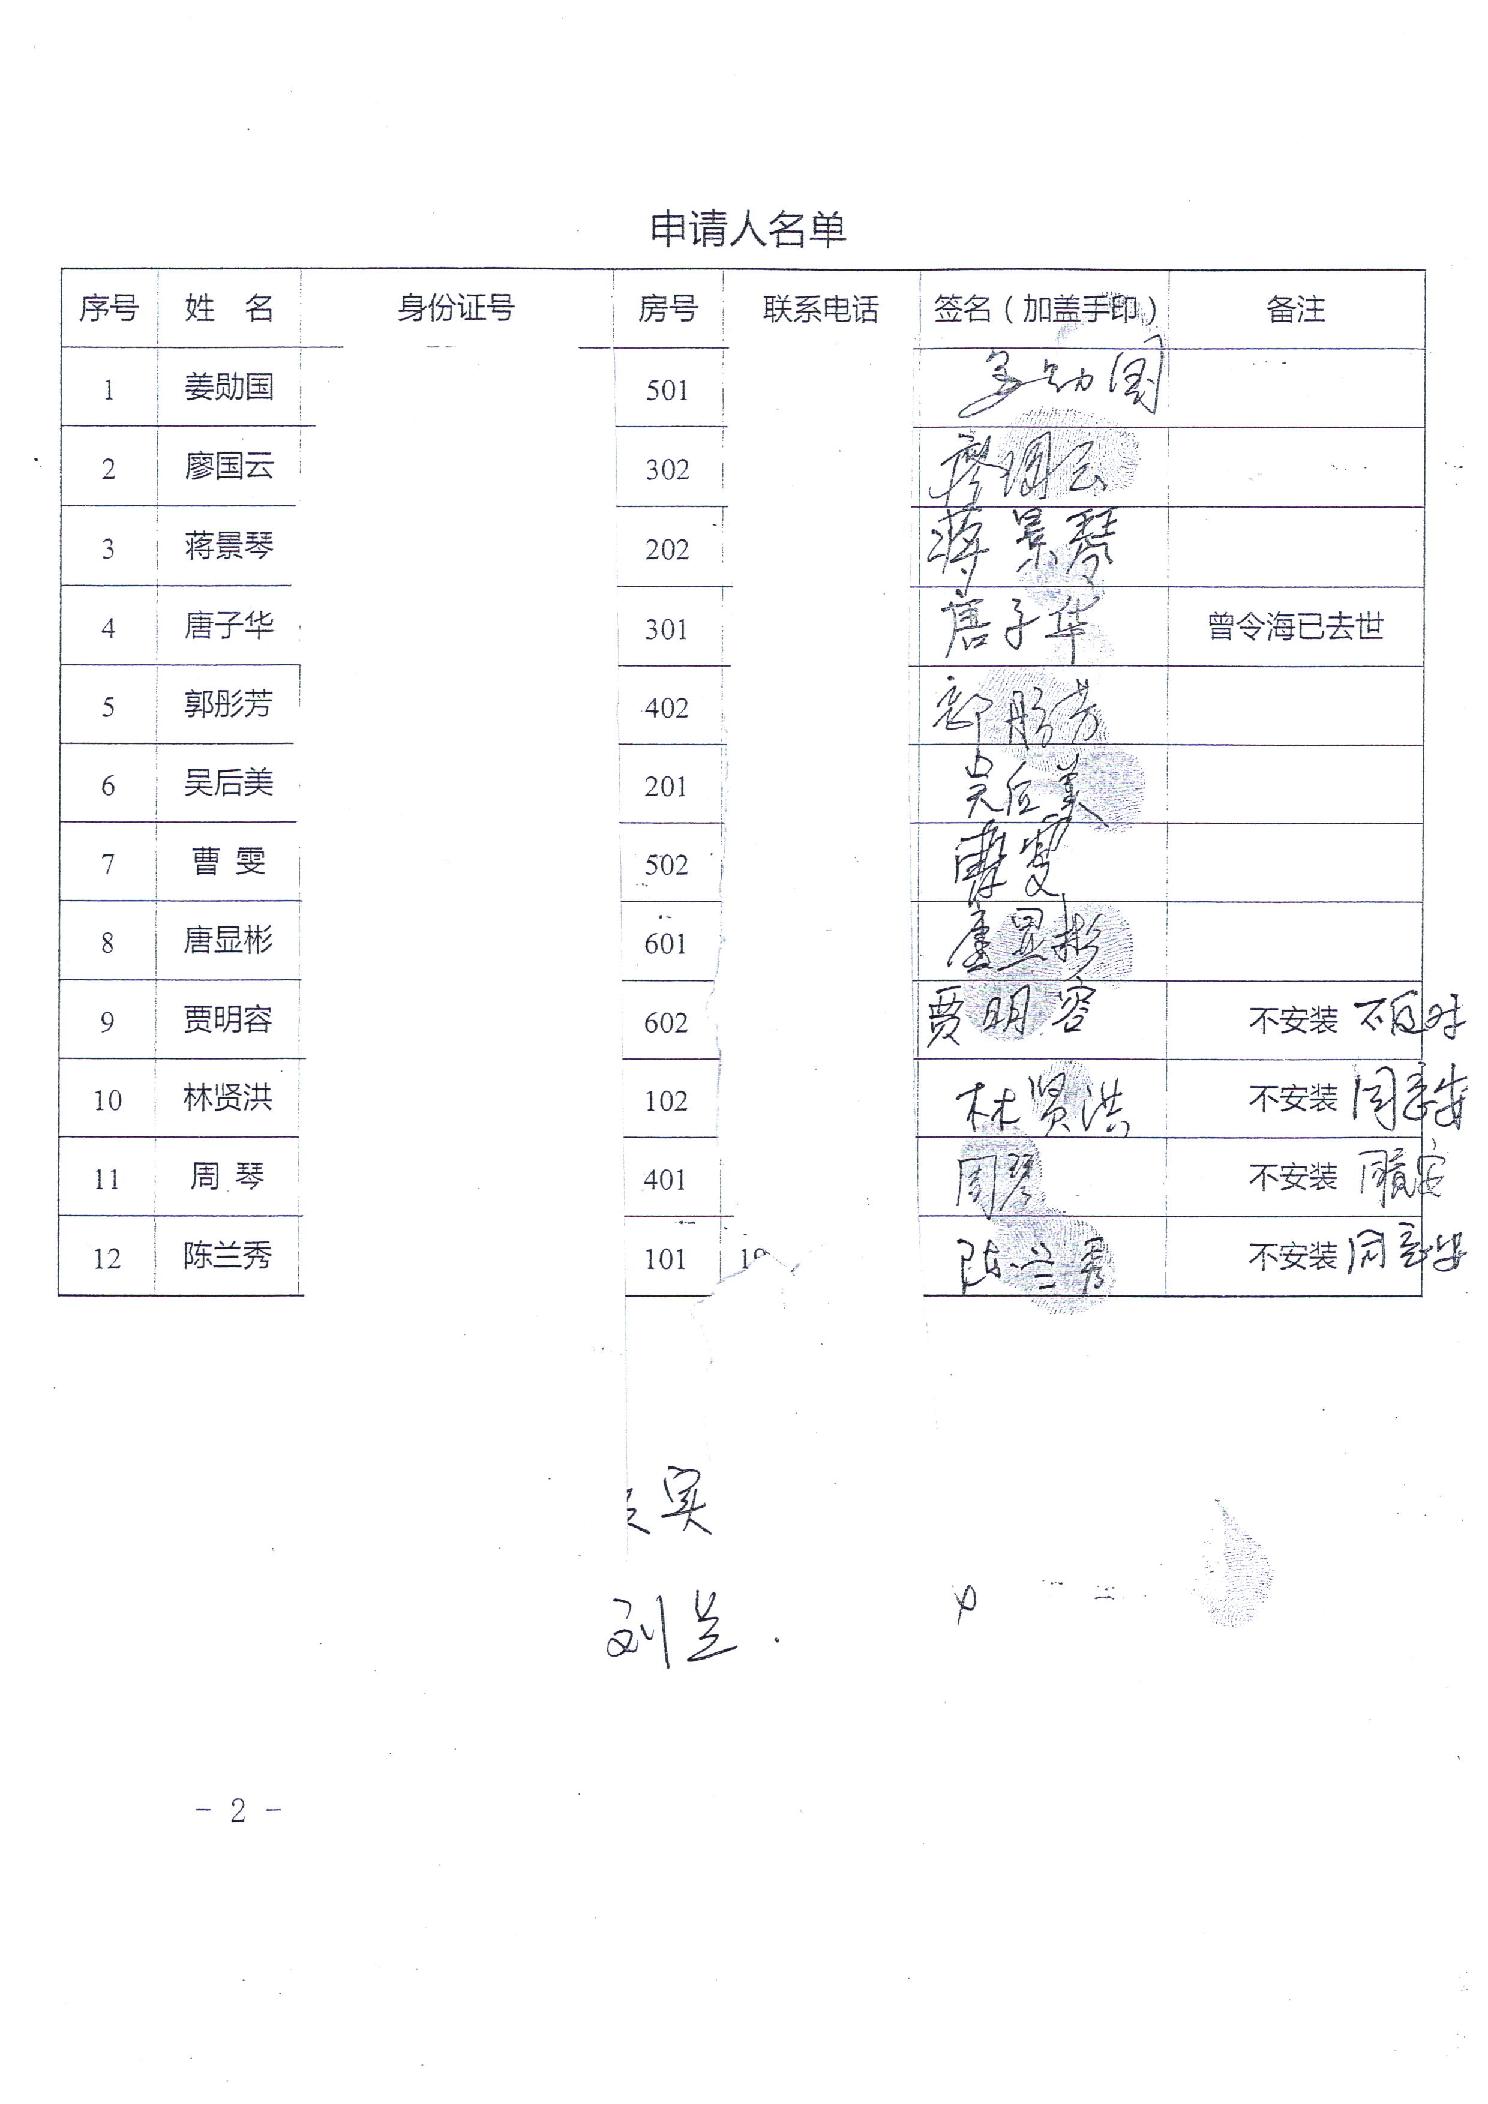 申请人名单
序号 姓 名 身份证号 房号 联系电话 签名（加盖手印） 备注
1 姜勋国 501 姜勋国
2 廖国云 302 廖国云
3 蒋景琴 202 蒋景琴
4 唐子华 301 唐子华 曾令海已去世
5 郭彤芳 402 郭彤芳
6 吴后美 201 吴后美
7 曹 雯 502 曹雯
8 唐显彬 601 唐显彬
9 贾明容 602 贾明容 不安装 不反对
10 林贤洪 102 林贤洪 不安装 同意安
11 周 琴 401 周琴 不安装 同意安
12 陈兰秀 101 陈兰秀 不安装 同意安
实
刘兰
- 2 -